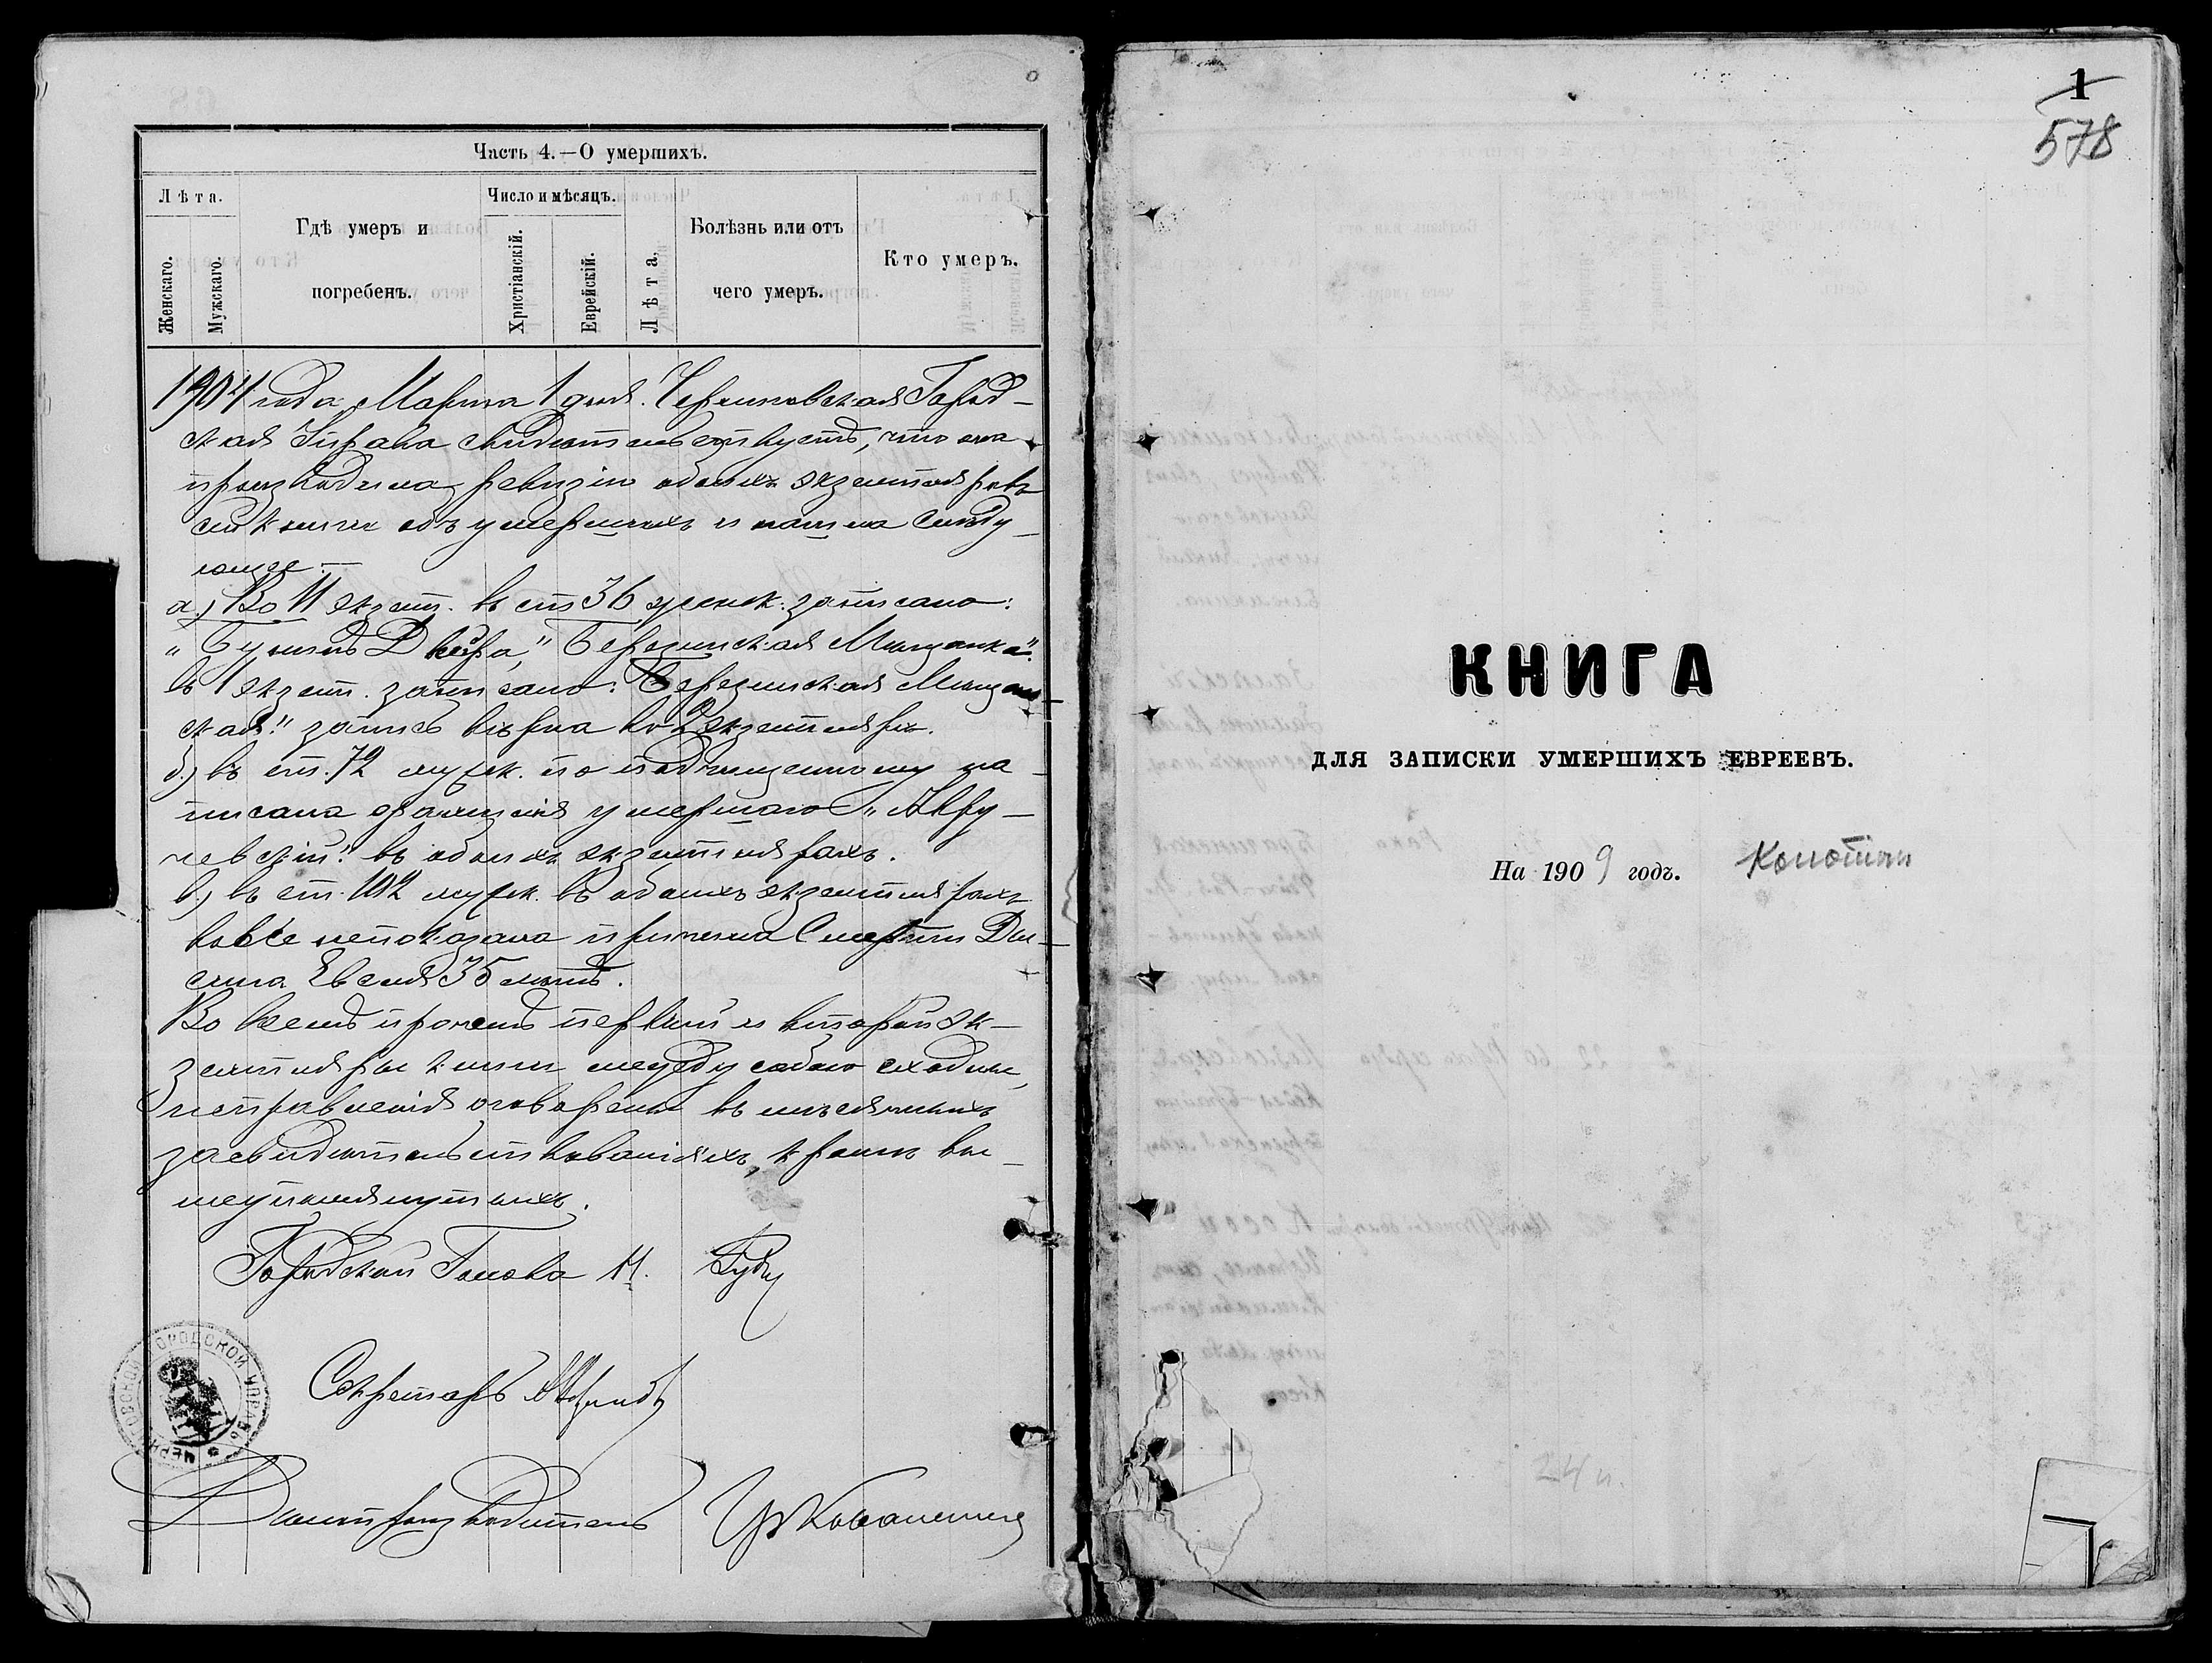 Часть 4.—О умершихъ.
Лѣта.
Женскаго.
Мужскаго.
Гдѣ умеръ и
погребенъ.
Число и мѣсяцъ.
Христіанскій.
Еврейскій.
Лѣта.
Болѣзнь или отъ
чего умеръ.
Кто умеръ.
1904 года Марта 1 дня. Черниговская Город-
ская Управа свидѣтельствуетъ, что она
производила ревизію обоихъ экземпляровъ
сей книги объ умершихъ и нашла слѣду-
ющее:—
а) Во II экзем. въ ст 36 женск. записано:
Двейра," Березинская Мѣщанка".
въ 1 экзем. записано: Березинская Мѣщан-
ская". запись вѣрна во 2 экземплярѣ.
б) въ ст. 72 мужск. по подчищенному на-
писана фамилія умершаго "Авру-
чевскій". въ обоихъ экземплярахъ.
в) въ ст. 102 мужск. въ обоихъ экземплярахъ
вовсе непоказана причина смерти
35 лѣтъ.
Во всемъ прочемъ первый и второй эк-
земпляры книги между собою сходны,
исправленія оговорены въ мѣсячныхъ
засвидѣтельствованіяхъ, кромѣ вы-
шеупомянутыхъ.
Городской Голова
Секретарь
ЧЕРНИГОВСКОЙ ГОРОДСКОЙ УПРАВЫ
Дѣлопроизводитель
1
578
КНИГА
ДЛЯ ЗАПИСКИ УМЕРШИХЪ ЕВРЕЕВЪ.
На 1909 годъ. Конотоп
24 л.